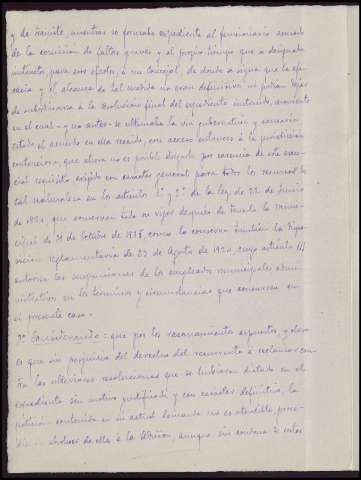 y de trámite, mientras se formaba expediente al funcionario acusado
de la comisión de faltas graves y al propio tiempo que se designaba
instructor para ese efecto, a un Concejal, de donde se sigue que la efi-
cacia y el alcance de tal acuerdo no eran definitivos ni podían dejar
de subordinarse a la resolución final del expediente instruido, momento
en el cual -y no antes- se ultimaba la vía gubernativa y causaría
estado el acuerdo en ella recaído, con acceso entonces a la jurisdicción
contenciosa, que ahora no es posible por carencia de este esen-
cial requisito, exigido con carácter general para todos los recursos de
tal naturaleza en los artículos 1º y 2º de la ley de 22 de Junio
de 1894 que conservan todo su vigor después de la Muni-
cipal de 31 de Octubre de 1935, como la conserva también la dispo-
sición reglamentaria de 23 de Agosto de 1924, cuyo artículo 111
autoriza las suspensiones de los empleados municipales admi-
nistrativos en los términos y circunstancias que concurren en
el presente caso.
2º Considerando: que por los razonamientos expuestos y claro
es que sin perjuicio del derecho del recurrente a reclamar con-
tra las ulteriores resoluciones que se hubieran dictado en el
expediente sin motivo justificado y con carácter definitivo, la
petición contenida en su actual demanda no es atendible, proce-
diendo absolver de ella a la Admón, aunque sin condena de costas